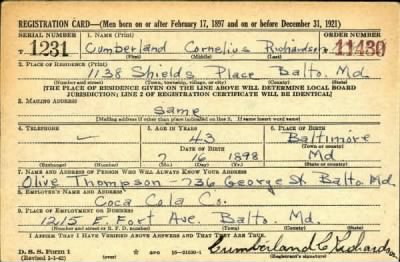 REGISTRATION CARD—(Men born on or after February 17, 1897 and on or before December 31, 1921)
SERIAL NUMBER 1. NAME (Print) ORDER NUMBER
T 1231 Cumberland Cornelius Richardson 11430
(First) (Middle) (Last)
2. PLACE OF RESIDENCE (Print)
1138 Shields Place Balto. Md.
(Number and street) (Town, township, village, or city) (County) (State)
[THE PLACE OF RESIDENCE GIVEN ON THE LINE ABOVE WILL DETERMINE LOCAL BOARD
JURISDICTION; LINE 2 OF REGISTRATION CERTIFICATE WILL BE IDENTICAL]
3. MAILING ADDRESS
Same
[Mailing address if other than place indicated on line 2. If same insert word same]
4. TELEPHONE 5. AGE IN YEARS 6. PLACE OF BIRTH
— 43 Baltimore
DATE OF BIRTH (Town or county)
7 16 1898 Md.
(Exchange) (Number) (Mo.) (Day) (Yr.) (State or country)
7. NAME AND ADDRESS OF PERSON WHO WILL ALWAYS KNOW YOUR ADDRESS
Olive Thompson - 736 George St. Balto. Md.
8. EMPLOYER'S NAME AND ADDRESS
Coca Cola Co.
9. PLACE OF EMPLOYMENT OR BUSINESS
1215 E. Fort Ave. Balto. Md.
(Number and street or R. F. D. number) (Town) (County) (State)
I AFFIRM THAT I HAVE VERIFIED ABOVE ANSWERS AND THAT THEY ARE TRUE.
D. S. S. Form 1
(Revised 1-1-42) GPO 16—21630-1 Cumberland C Richardson
(Registrant's signature)